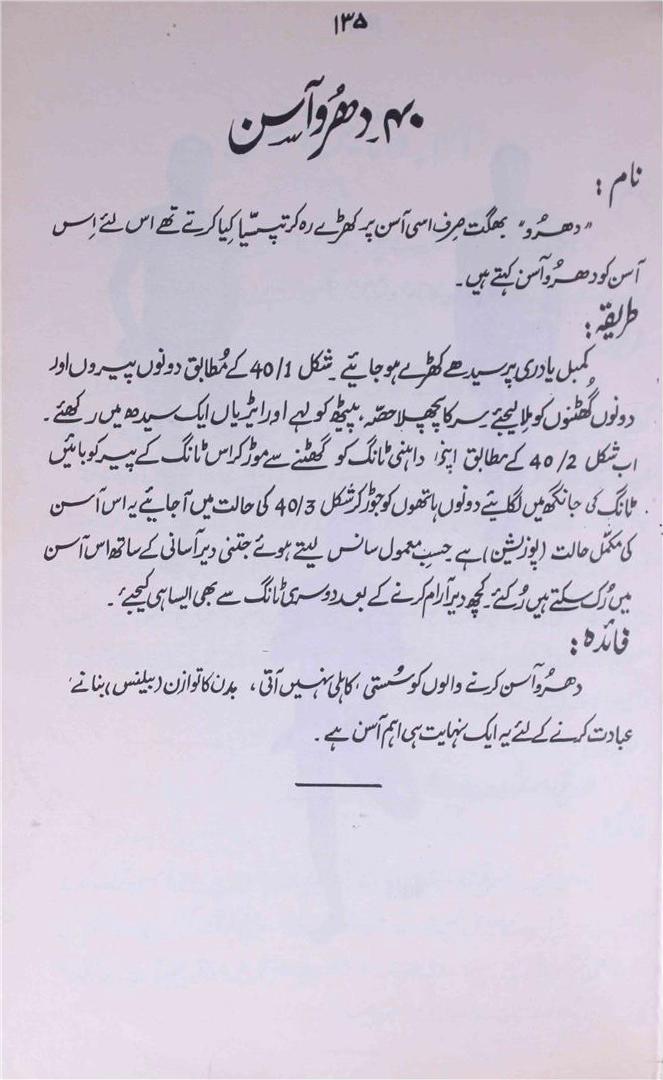 ۱۳۵
۴۰۔ دھرُو آسن
نام :
”دھرُو“ بھگت صِرف اسی آسن پر کھڑے رہ کر تپسیّا کِیا کرتے تھے اس لئے اِس
آسن کو دھرُو آسن کہتے ہیں۔
طریقہ :
کمبل یا دری پر سیدھے کھڑے ہو جائیے۔ شکل 40/1 کے مُطابق دونوں پیروں اور
دونوں گُھٹنوں کو مِلا لیجئے سر کا پچھلا حصّہ، پیٹھ، کولہے اور ایڑیاں ایک سیدھ میں رکھئے۔
اب شکل 40/2 کے مطابق اپنی داہنی ٹانگ کو گھٹنے سے موڑ کر اس ٹانگ کے پیر کو بائیں
ٹانگ کی جانگھ میں لگائیے دونوں ہاتھوں کو جوڑ کر شکل 40/3 کی حالت میں آجائیے یہ اس آسن
کی مکمّل حالت (پوزیشن) ہے۔ حسبِ معمول سانس لیتے ہوئے جتنی دیر آسانی کے ساتھ اس آسن
میں رُک سکتے ہیں رُکئے۔ کچھ دیر آرام کرنے کے بعد دوسری ٹانگ سے بھی ایسا ہی کیجئے۔
فائدہ :
دھرُو آسن کرنے والوں کو سُستی، کاہلی نہیں آتی، بدن کا توازن (بیلنس) بنانے،
عبادت کرنے کے لئے یہ ایک نہایت ہی اہم آسن ہے۔